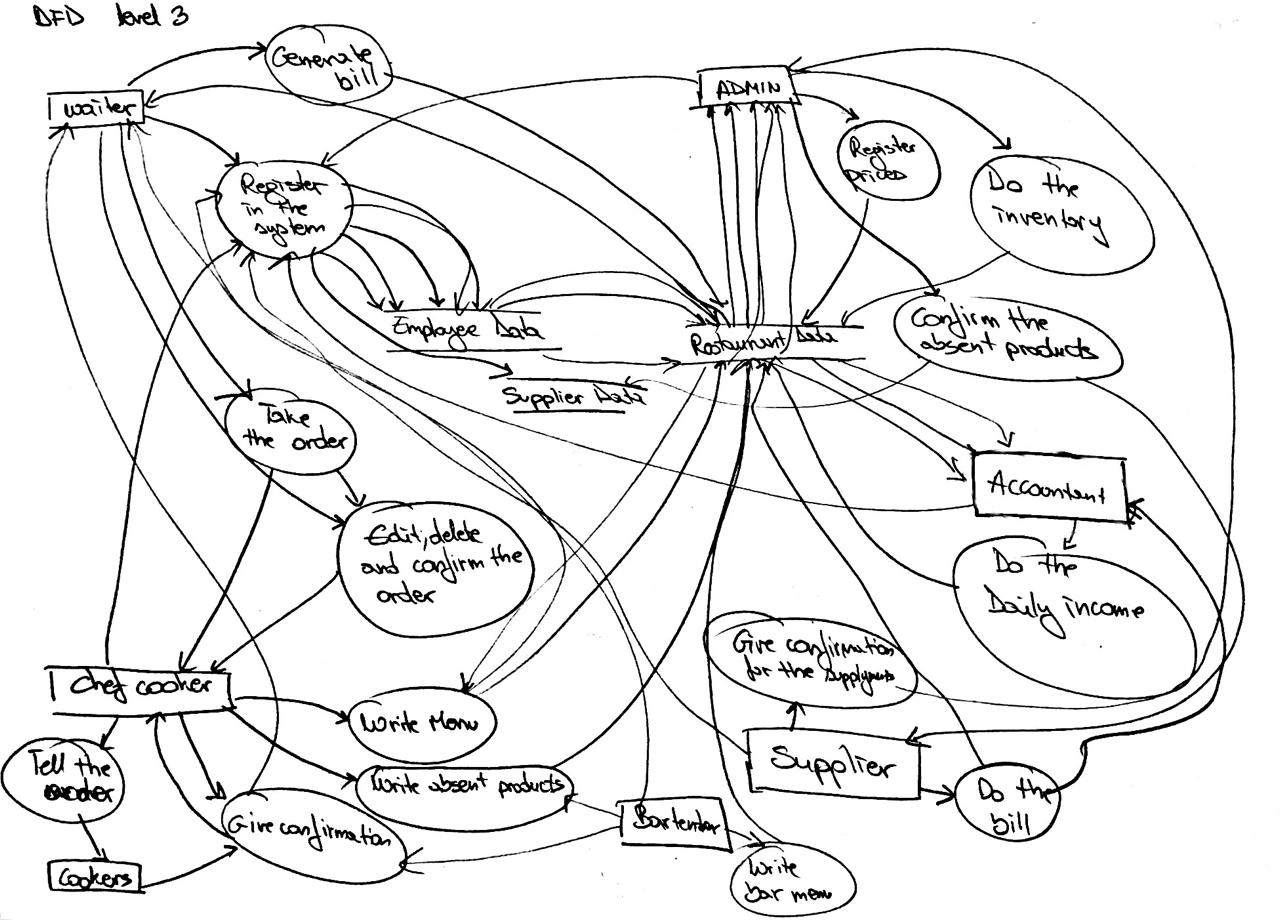 DFD level 3
Generate
bill
waiter
ADMIN
Register
prices
Do the
inventory
Register
in the
system
Employee Data
Restaurant Data
Confirm the
absent products
Supplier Data
Take
the order
Accountant
Edit, delete
and confirm the
order
Do the
Daily income
Give confirmation
for the supplyments
Chef cooker
Write Menu
Supplier
Tell the
order
Write absent products
Do the
bill
Give confirmation
Bartender
Cookers
Write
bar menu